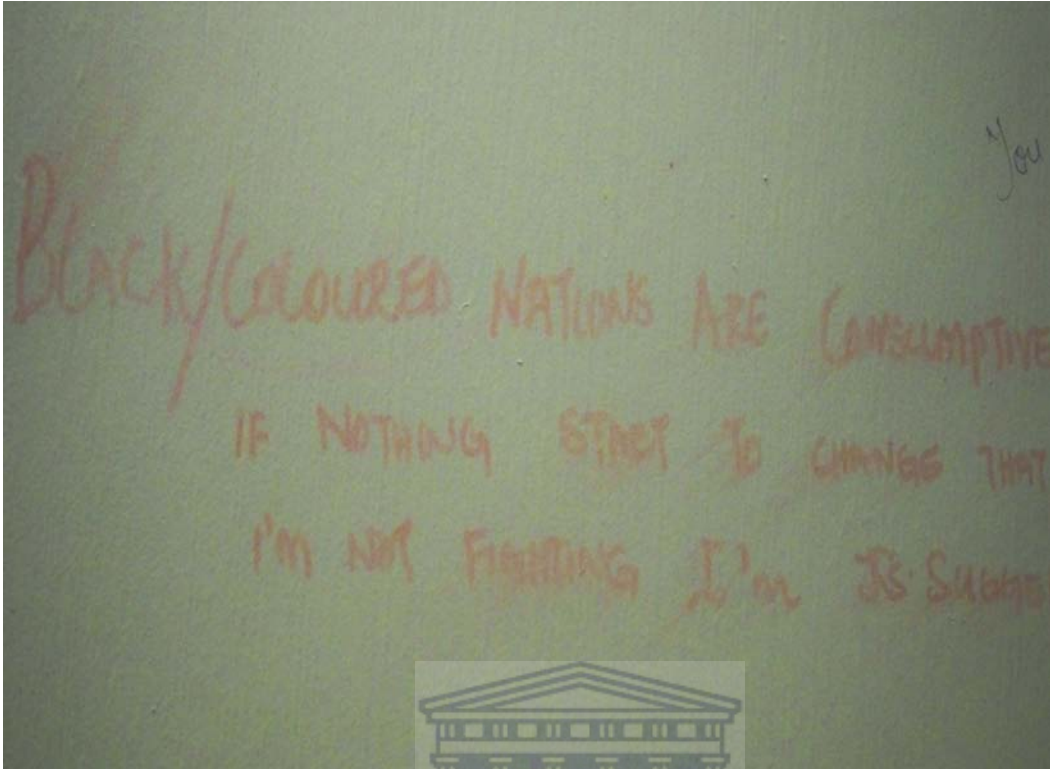 You
BLACK/COLOURED NATIONS ARE CONSUMPTIVE
IF NOTHING START TO CHANGE THAT
I'm NOT FIGHTING I'm JS SUGGE